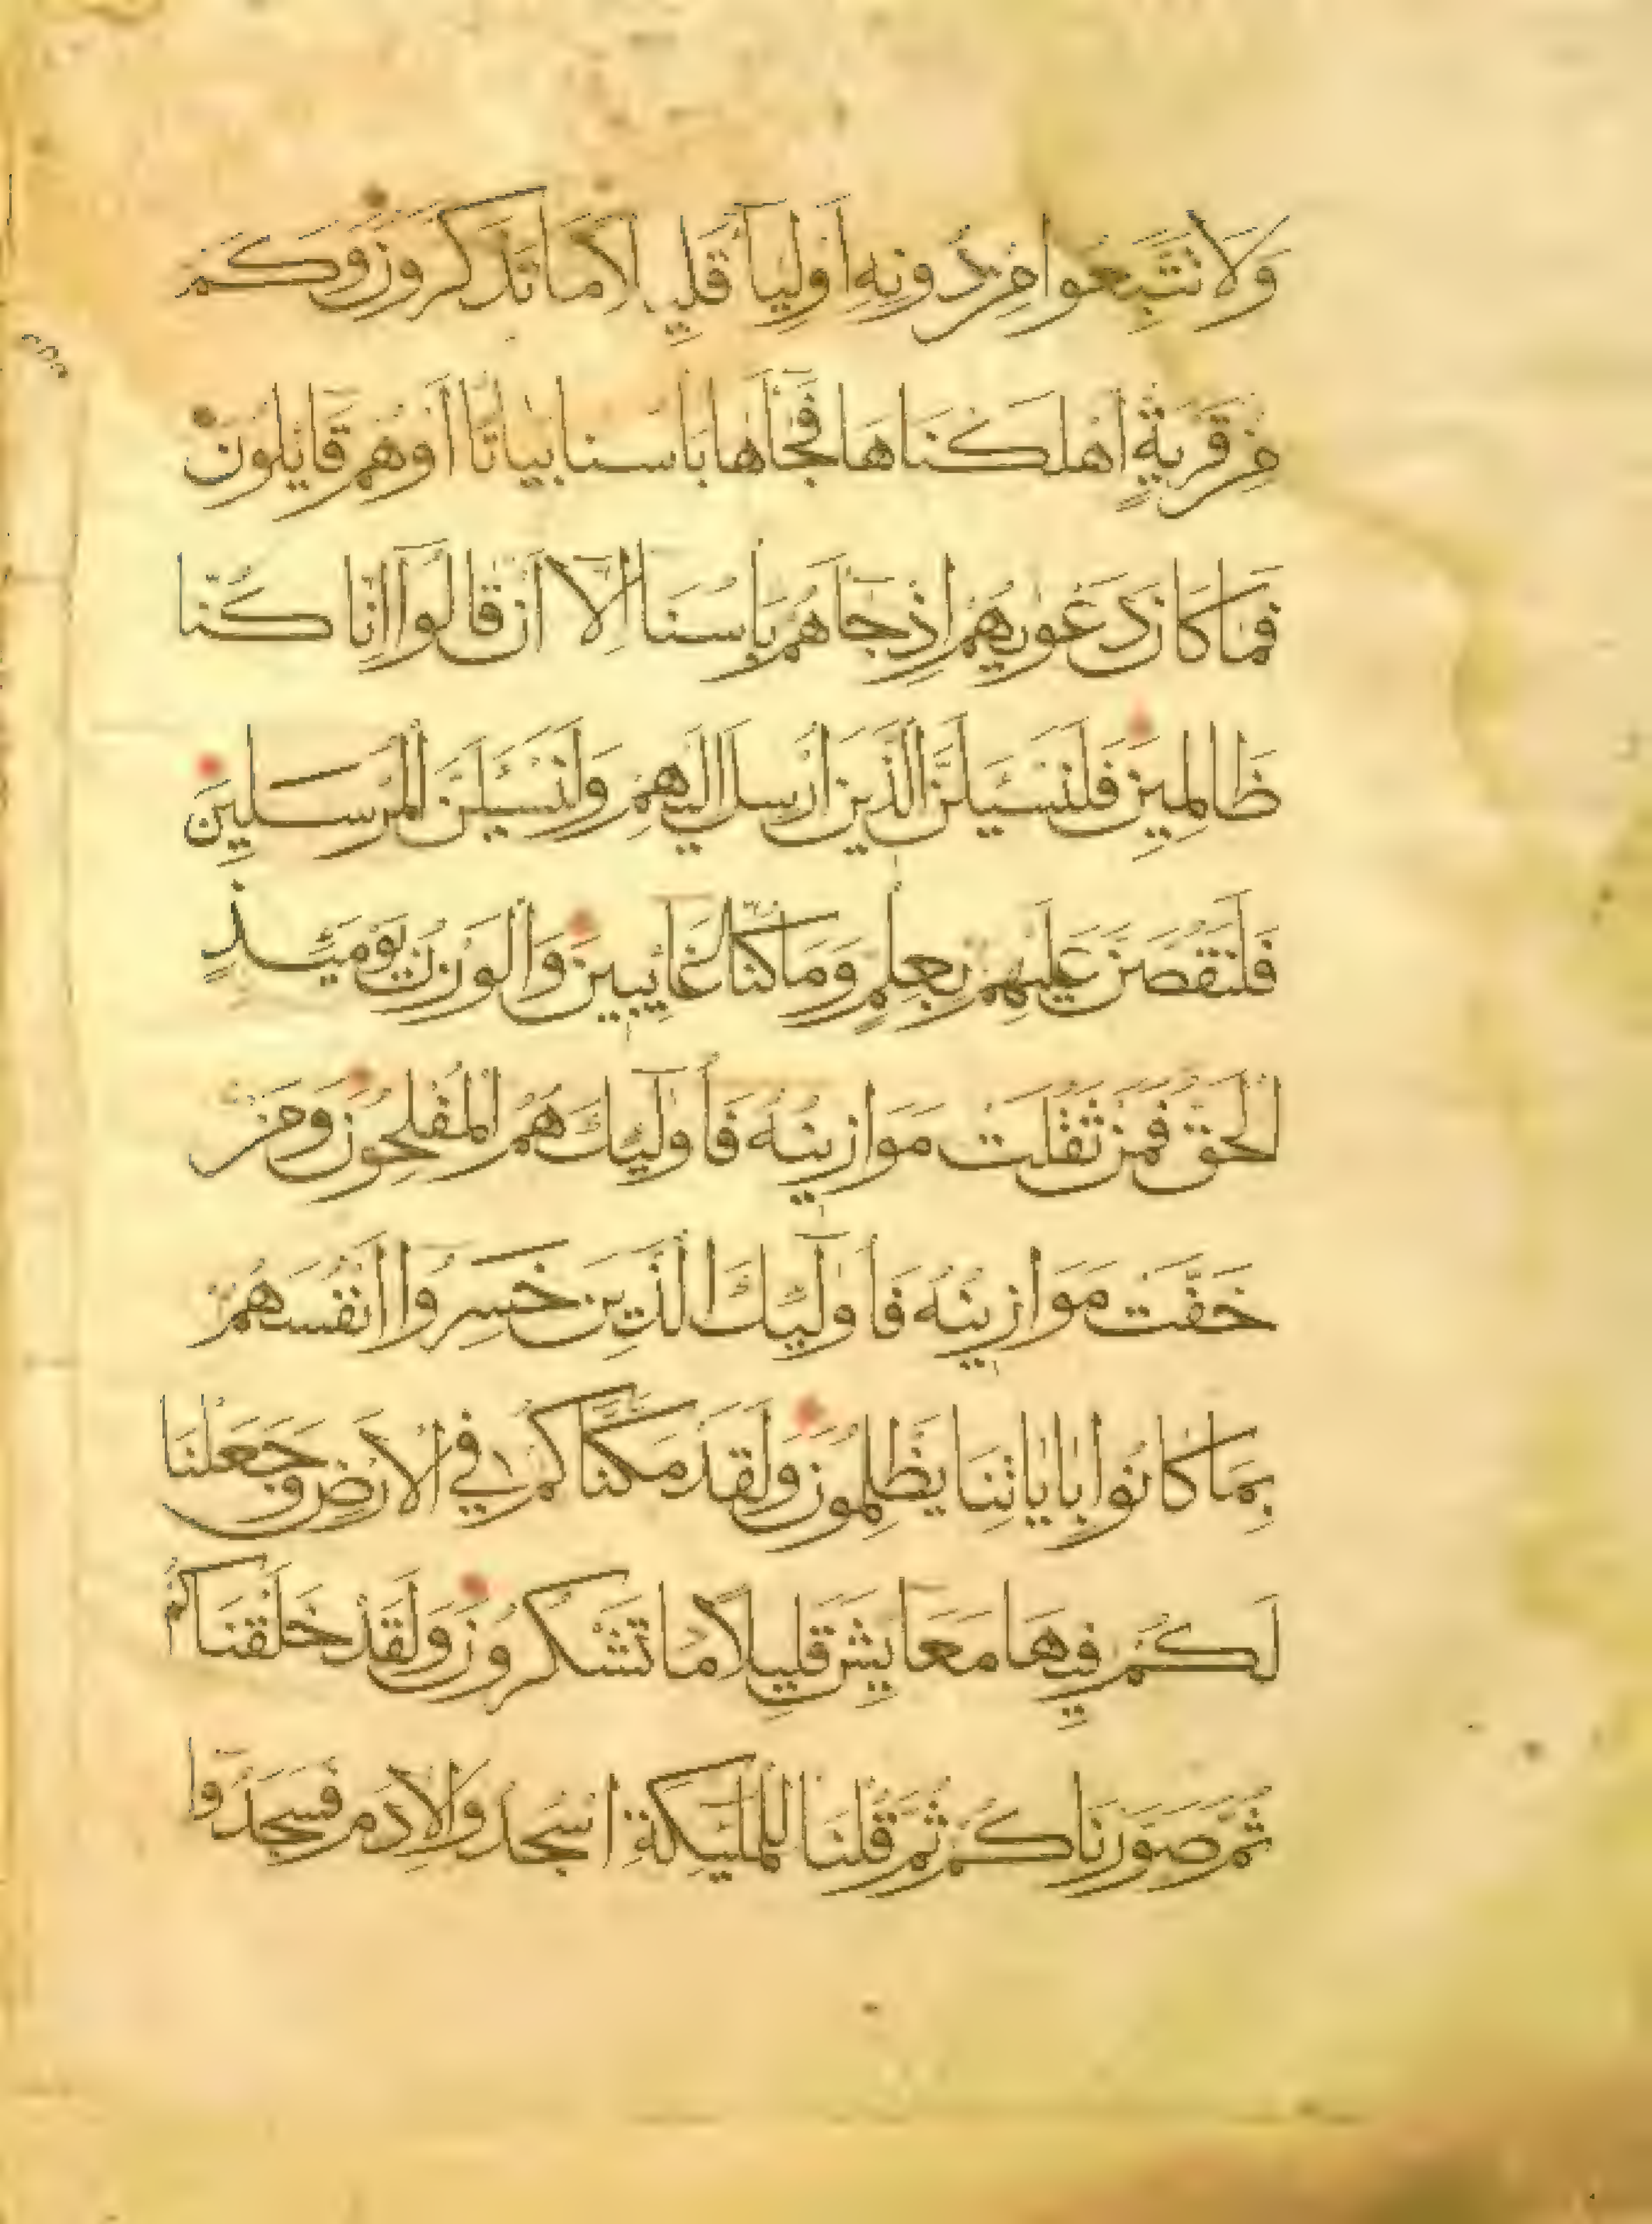 وَلَا تَتَّبِعُوا مِن دُونِهِ أَوْلِيَآءَ قَلِيلًا مَا تَذَكَّرُونَ وَكَم
مِن قَرْيَةٍ أَهْلَكْنَاهَا فَجَآأَهَا بَأْسُنَا بَيَاتًا أَوْ هُمْ قَايِلُونَ
فَمَا كَانَ دَعْوٰيهُمْ إِذْ جَآهُمْ بَأْسُنَا إِلَّا أَن قَالُوا إِنَّا كُنَّا
ظَالِمِينَ فَلَنَسْئَلَنَّ الَّذِينَ أُرْسِلَ إِلَيْهِمْ وَلَنَسْئَلَنَّ الْمُرْسَلِينَ
فَلَنَقُصَّنَّ عَلَيْهِمْ بِعِلْمٍ وَمَا كُنَّا غَائِبِينَ وَالْوَزْنُ يَوْمَئِذٍ
الْحَقُّ فَمَنْ ثَقُلَتْ مَوَازِينُهُ فَأُولٰٓئِكَ هُمُ الْمُفْلِحُونَ وَمَنْ
خَفَّتْ مَوَازِينُهُ فَأُولٰٓئِكَ الَّذِينَ خَسِرُوا أَنْفُسَهُمْ
بِمَا كَانُوا بِاٰيَاتِنَا يَظْلِمُونَ وَلَقَدْ مَكَّنَّاكُمْ فِي الْأَرْضِ وَجَعَلْنَا
لَكُمْ فِيهَا مَعَايِشَ قَلِيلًا مَا تَشْكُرُونَ وَلَقَدْ خَلَقْنَاكُمْ
ثُمَّ صَوَّرْنَاكُمْ ثُمَّ قُلْنَا لِلْمَلٰٓئِكَةِ اسْجُدُوا لِآدَمَ فَسَجَدُوٓا